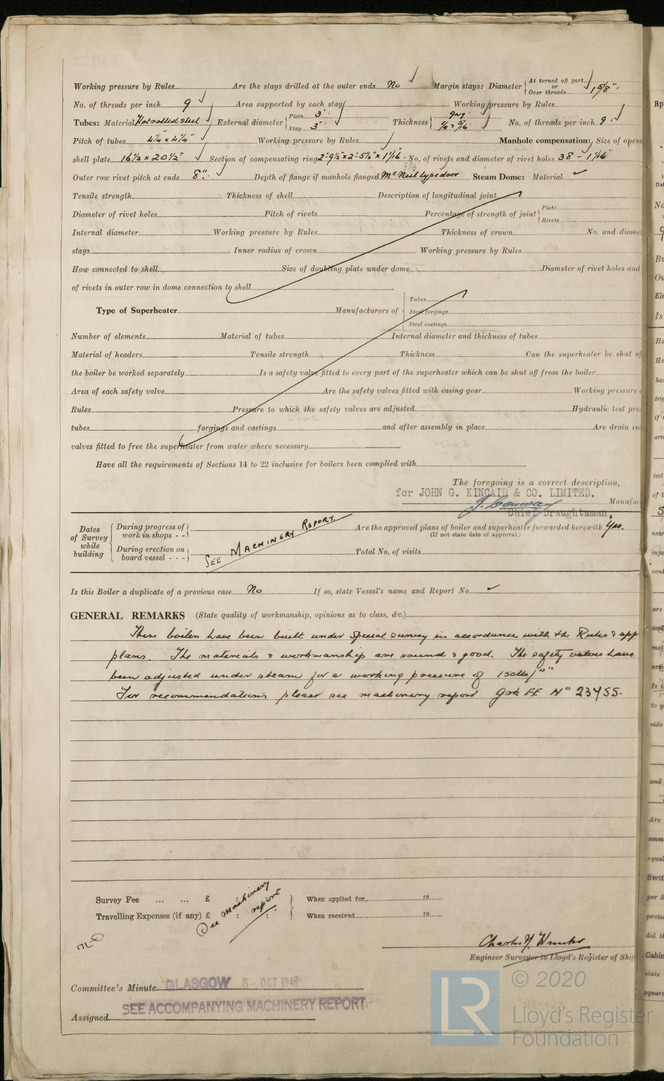 Working pressure by Rules Are the stays drilled at the outer ends No Margin stays: Diameter { At turned off part or Over threads 1 5/8"
No. of threads per inch 9 Area supported by each stay Working pressure by Rules
Tubes: Material Hot rolled steel External diameter { Plain 3" Stay 3" Thickness { 9wg 1/4" & 5/16" No. of threads per inch 9
Pitch of tubes 4 1/4" x 4 1/4" Working pressure by Rules Manhole compensation: Size of open
shell plate 16 1/2" x 20 1/2" Section of compensating ring No. of rivets and diameter of rivet holes 38 - 1 1/16"
Outer row rivet pitch at ends 8" Depth of flange if manhole flanged McNeil type door Steam Dome: Material
Tensile strength Thickness of shell Description of longitudinal joint
Diameter of rivet holes Pitch of rivets Percentage of strength of joint { Plate Rivets
Internal diameter Working pressure by Rules Thickness of crown No. and diame
stays Inner radius of crown Working pressure by Rules
How connected to shell Size of doubling plate under dome Diameter of rivet holes and
of rivets in outer row in dome connection to shell
Type of Superheater Manufacturers of { Tubes Steel forgings Steel castings
Number of elements Material of tubes Internal diameter and thickness of tubes
Material of headers Tensile strength Thickness Can the superheater be shut of
the boiler be worked separately Is a safety valve fitted to every part of the superheater which can be shut off from the boiler
Area of each safety valve Are the safety valves fitted with easing gear Working pressure
Rules Pressure to which the safety valves are adjusted Hydraulic test pre
tubes forgings and castings and after assembly in place Are drain co
valves fitted to free the superheater from water where necessary
Have all the requirements of Sections 14 to 22 inclusive for boilers been complied with
The foregoing is a correct description,
for JOHN G. KINCAID & CO. LIMITED. Manufac
Chief Draughtsman.
Dates of Survey while building { During progress of work in shops - - During erection on board vessel - - - } SEE MACHINERY REPORT Are the approved plans of boiler and superheater forwarded herewith Yes.
(If not state date of approval.)
Total No. of visits
Is this Boiler a duplicate of a previous case No If so, state Vessel's name and Report No.
GENERAL REMARKS (State quality of workmanship, opinions as to class, &c.)
These boilers have been built under special survey in accordance with the Rules & app
plans. The materials & workmanship are sound & good. The safety valves have
been adjusted under steam for a working pressure of 150lbs/□"
For recommendations please see machinery report Grk FE No 23455.
Survey Fee ... ... £ When applied for 19
Travelling Expenses (if any) £ When received 19
See Machinery report
Charles Hunter
Engineer Surveyor to Lloyd's Register of Shi
Committee's Minute GLASGOW 5 - OCT 1948
SEE ACCOMPANYING MACHINERY REPORT.
Assigned
LR © 2020
Lloyd's Register
Foundation